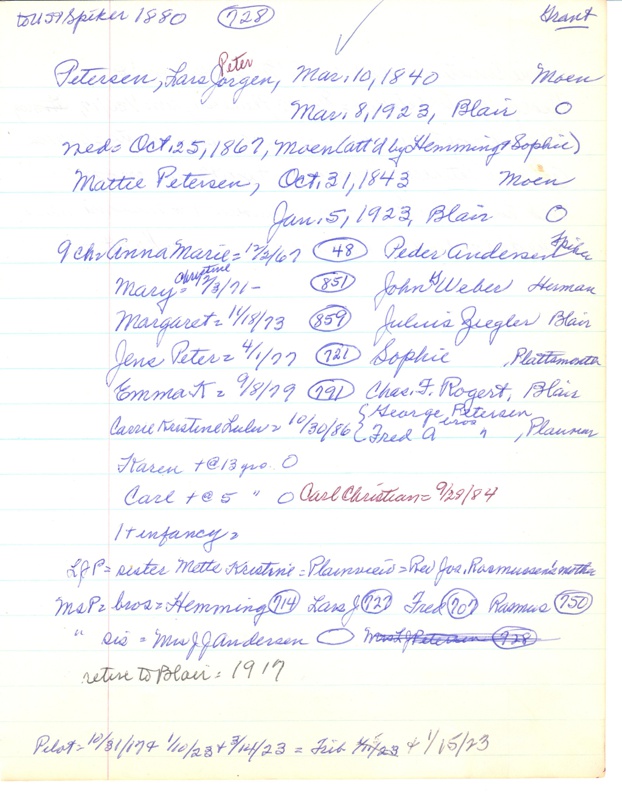 to USA Spiker 1880 728 Grant
Petersen, Lars Jorgen, Peter Mar. 10, 1840 Moen
Mar. 8, 1923, Blair O
med = Oct. 25, 1867, Moen (att'd by Hemming & Sophie)
Mattie Petersen, Oct. 31, 1843 Moen
Jan. 5, 1923, Blair O
9 ch = Anna Marie = 12/2/67 48 Peder Andersen Spiker
Mary Christine = 2/3/71 - 851 John G Weber Herman
Margaret = 11/18/73 859 Julius Ziegler Blair
Jens Peter = 4/1/77 721 Sophie , Plattsmouth
Emma K = 9/8/79 791 Chas. F. Rogert, Blair
Carrie Kristine Lulu = 10/30/86 { George Petersen
{ Fred A bros " , Plainview
Karen + @ 13 yrs. O
Carl + @ 5 " O Carl Christian = 9/29/84
1 + infancy =
LJP = sister Mette Kristine = Plainview = Rev Jos. Rasmussen's mother
MsP = bros = Hemming 714 Lars J 727 Fred 707 Rasmus 750
" sis = Mrs J J Andersen O Mrs L J Petersen 728
retire to Blair = 1917
Pilot = 10/31/17 & 1/10/23 & 3/14/23 = Trib & 1/15/23